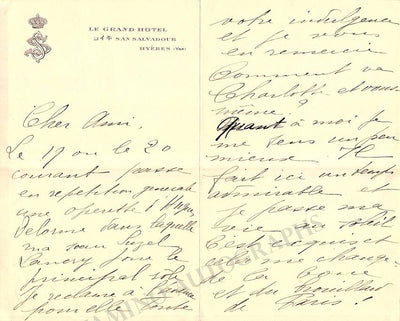 LE GRAND HOTEL
SAN SALVADOUR
HYÈRES (VAR)
Cher Ami,
Le 19 ou le 20
courant passe
en repetition generale
une operette d'
Delorme dans laquelle
ma soeur Suzel
joue le
principal role
je reclame à
pour elle toute
votre indulgence
et je vous
en remercie
Comment va
Charlotte et vous
même ?
Quant à moi je
me sens un peu
mieux Il
fait ici un temps
admirable et
je passe ma
vie au soleil
C'est exquis et
comme change
de la
et du brouillard
de Paris !